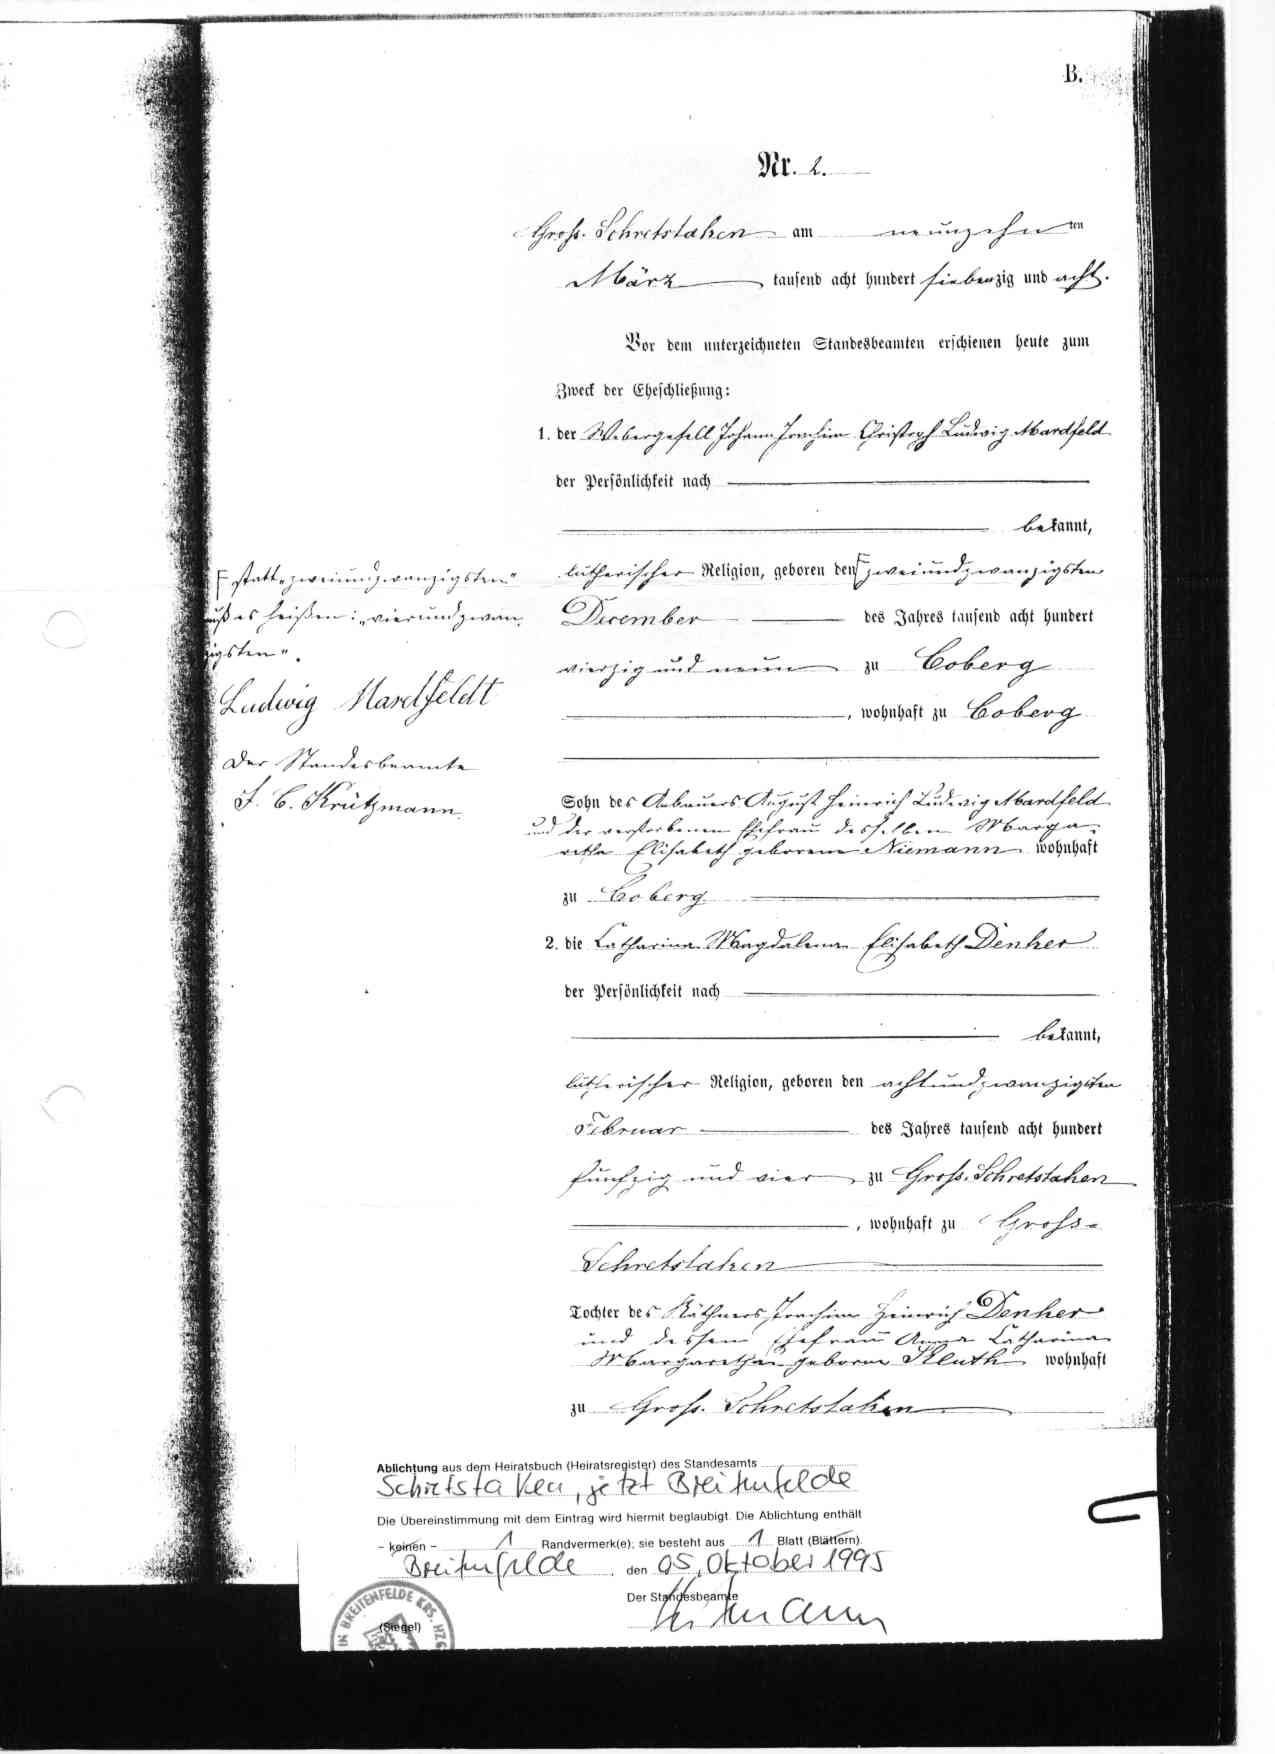 B.
Nr. 2.
Gross-Schretstaken am neunzehnten
März tausend acht hundert siebenzig und acht.
Vor dem unterzeichneten Standesbeamten erschienen heute zum
Zweck der Eheschließung:
1. der Webergesell Johann Joachim Christoph Ludwig Mardfeld
der Persönlichkeit nach
bekannt,
lutherischer Religion, geboren den zweiundzwanzigsten
December des Jahres tausend acht hundert
vierzig und neun zu Coberg
, wohnhaft zu Coberg
Sohn des Anbauers August Heinrich Ludwig Mardfeld
und der verstorbenen Ehefrau desselben Marga-
retha Elisabeth geborene Niemann wohnhaft
zu Coberg
2. die Catharina Magdalena Elisabeth Denker
der Persönlichkeit nach
bekannt,
lutherischer Religion, geboren den achtundzwanzigsten
Februar des Jahres tausend acht hundert
fünfzig und vier zu Gross-Schretstaken
, wohnhaft zu Gross-
Schretstaken
Tochter des Käthners Joachim Heinrich Denker
und dessen Ehefrau Anna Catharina
Margaretha geborne Kluth wohnhaft
zu Gross-Schretstaken
statt „zweiundzwanzigsten"
muß es heißen: „vierundzwan-
zigsten".
Ludwig Mardfeldt
Der Standesbeamte
J. C. Krützmann
Ablichtung aus dem Heiratsbuch (Heiratsregister) des Standesamts
Schretstaken, jetzt Breitenfelde
Die Übereinstimmung mit dem Eintrag wird hiermit beglaubigt. Die Ablichtung enthält
– keinen – 1 Randvermerk(e); sie besteht aus 1 Blatt (Blättern).
Breitenfelde, den 05. Oktober 1995
Der Standesbeamte
(Siegel)
IN BREITENFELDE KRS. HZG